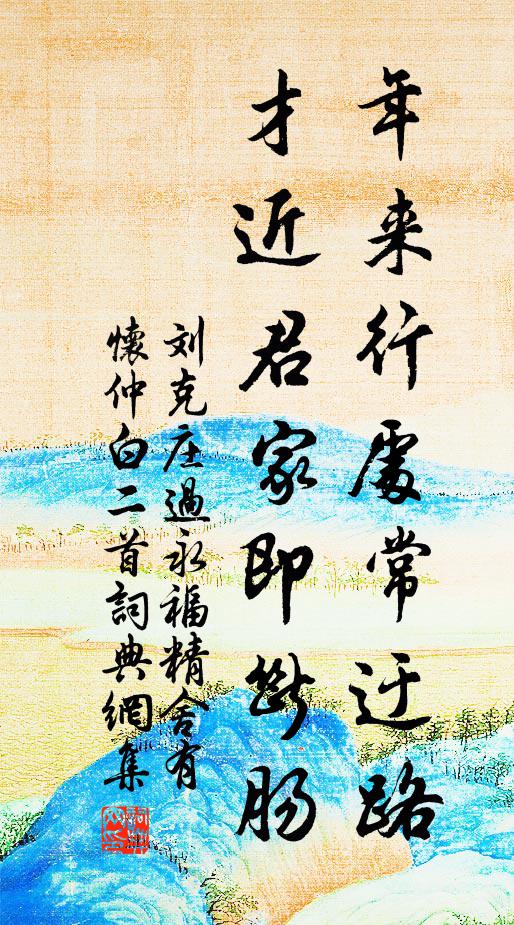 年来行處常迂路
才近君家即断肠
刘克庄過永福精舍有
懷仲白二首詞典網集